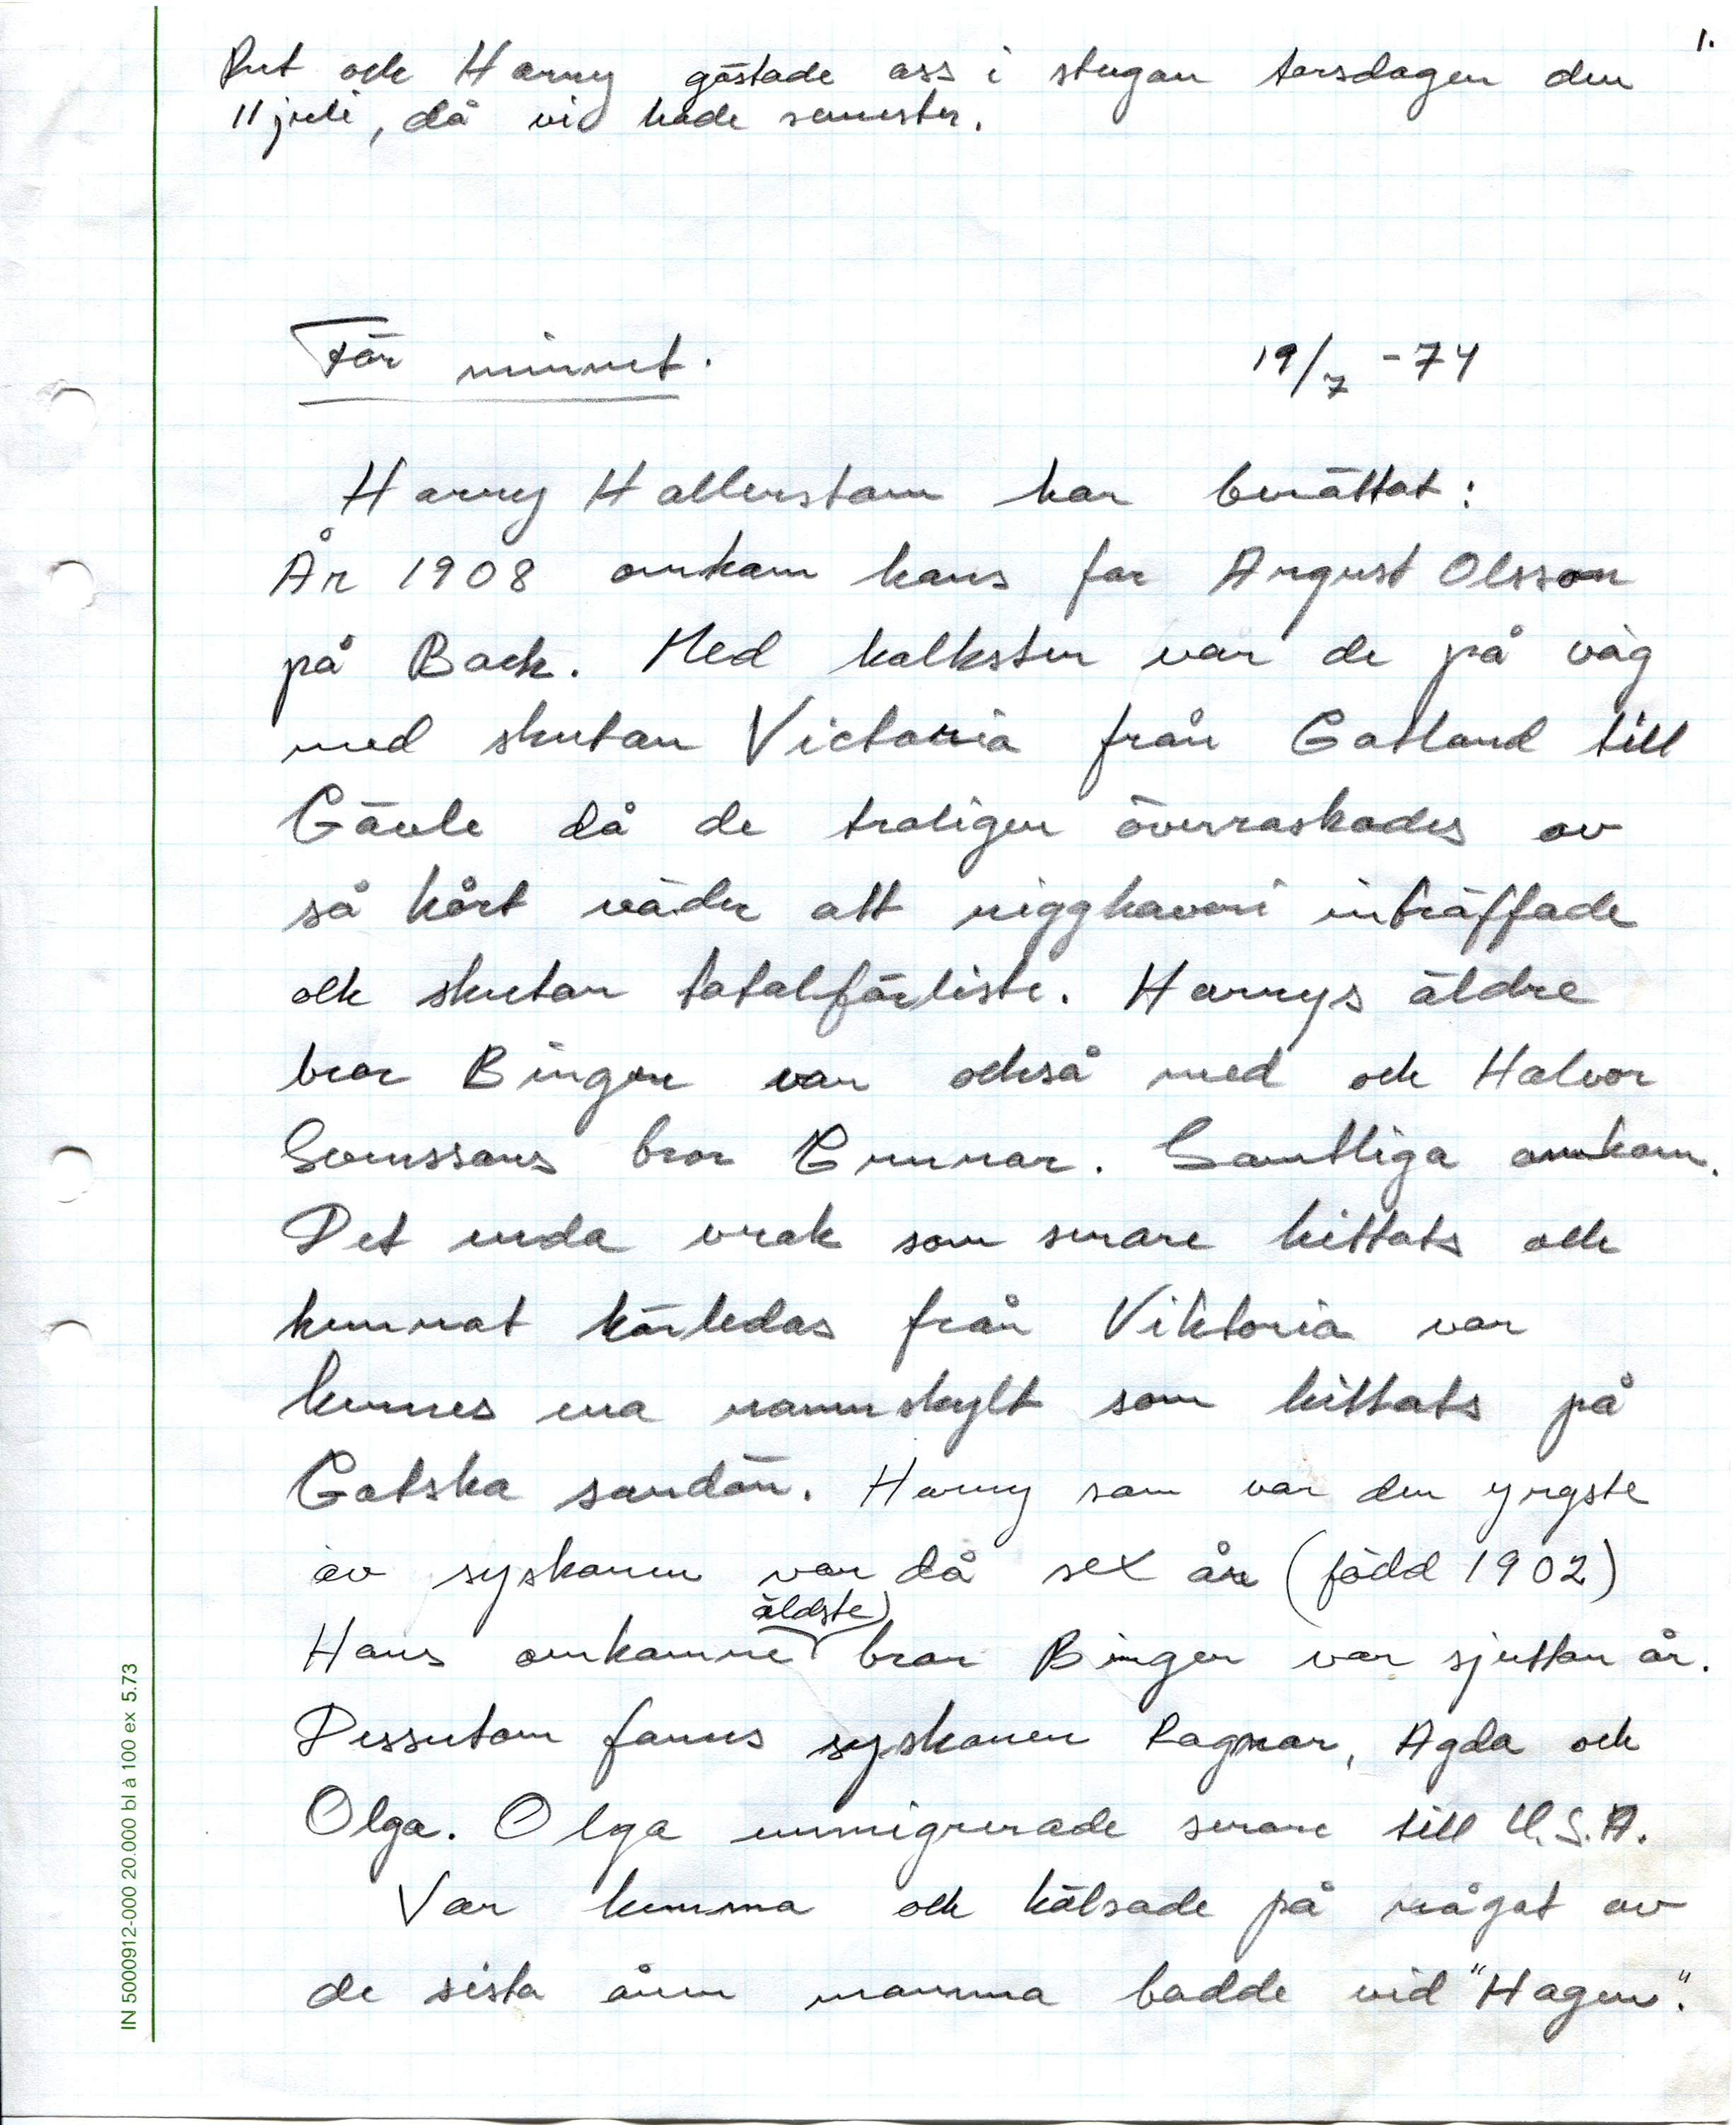 1.
Rut och Harry gästade oss i stugan torsdagen den
11 juli, då vi hade semester.
För minnet. 19/7 -74
Harry Hallerstam har berättat:
År 1908 omkom hans far August Olsson
på Back. Med kalksten var de på väg
med skutan Victoria från Gotland till
Gävle då de troligen överraskades av
så hårt väder att rigghaveri inträffade
och skutan totalförliste. Harrys äldre
bror Birger var också med och Halvor
Svenssons bror Gunnar. Samtliga omkom.
Det enda vrak som senare hittats och
kunnat härledas från Viktoria var
hennes ena namnskylt som hittats på
Gotska sandön. Harry som var den yngste
av syskonen var då sex år (född 1902)
äldste
Hans omkomne bror Birger var sjutton år.
Dessutom fanns syskonen Ragnar, Agda och
Olga. Olga emmigrerade senare till U.S.A.
Var hemma och hälsade på något av
de sista åren mamma bodde vid "Hagen".
IN 5000912-000 20.000 bl à 100 ex 5.73